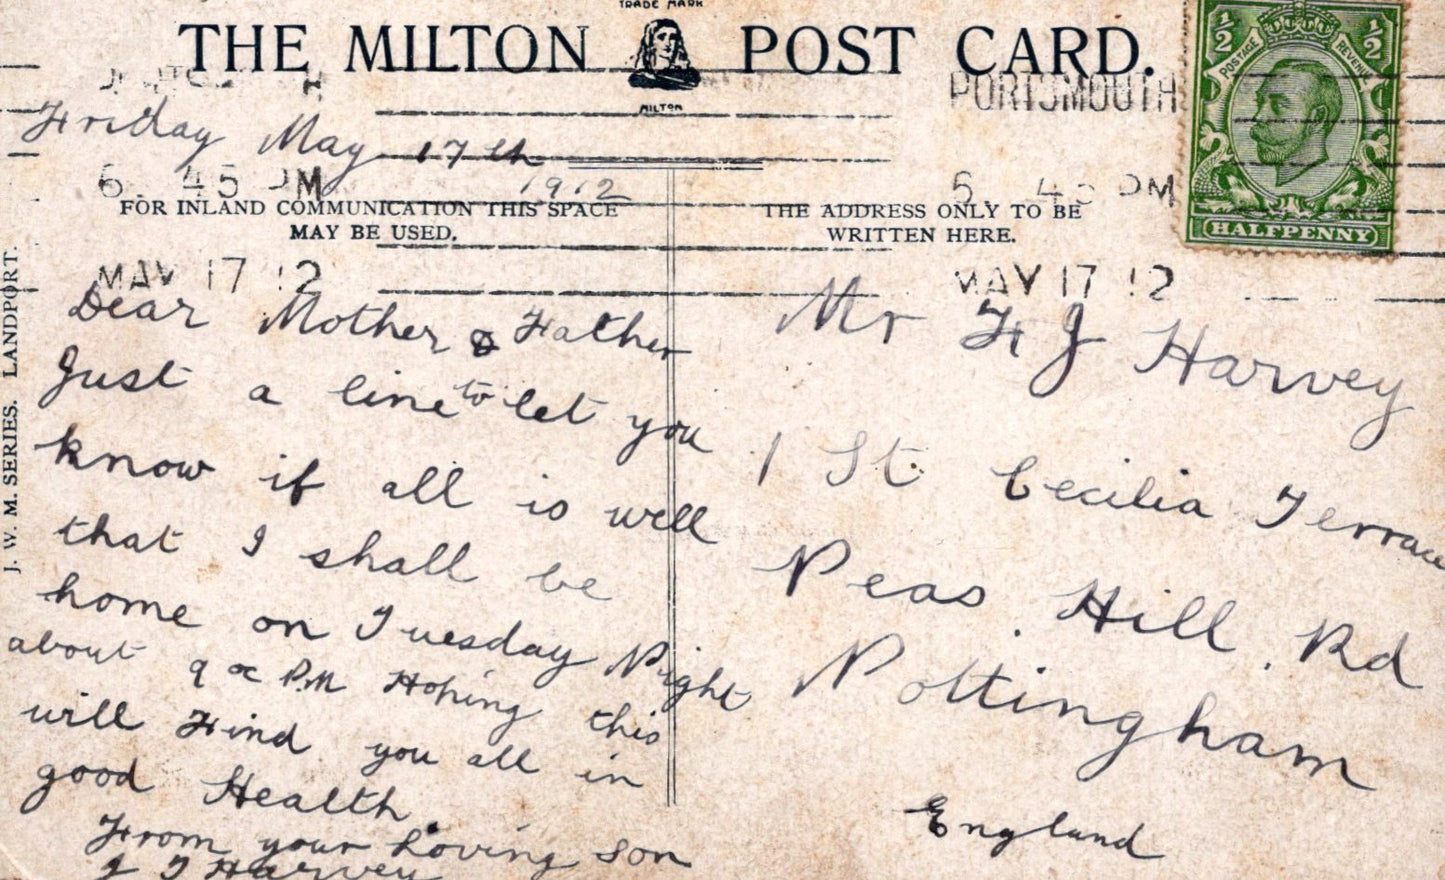 TRADE MARK
THE MILTON POST CARD.
MILTON
PORTSMOUTH
6. 45 PM
MAY 17 12
PORTSMOUTH
6. 45 PM
MAY 17 12
POSTAGE REVENUE
1/2 1/2
HALFPENNY
Friday May 17th
1912
FOR INLAND COMMUNICATION THIS SPACE
MAY BE USED.
THE ADDRESS ONLY TO BE
WRITTEN HERE.
J. W. M. SERIES. LANDPORT.
Dear Mother & Father
Just a line to let you
know if all is well
that I shall be
home on Tuesday Night
about 9 oc P.M Hoping this
will Find you all in
good Health.
From your Loving son
J Harvey
Mr F J Harvey
1 St Cecilia Terrace
Peas Hill Rd
Nottingham
England